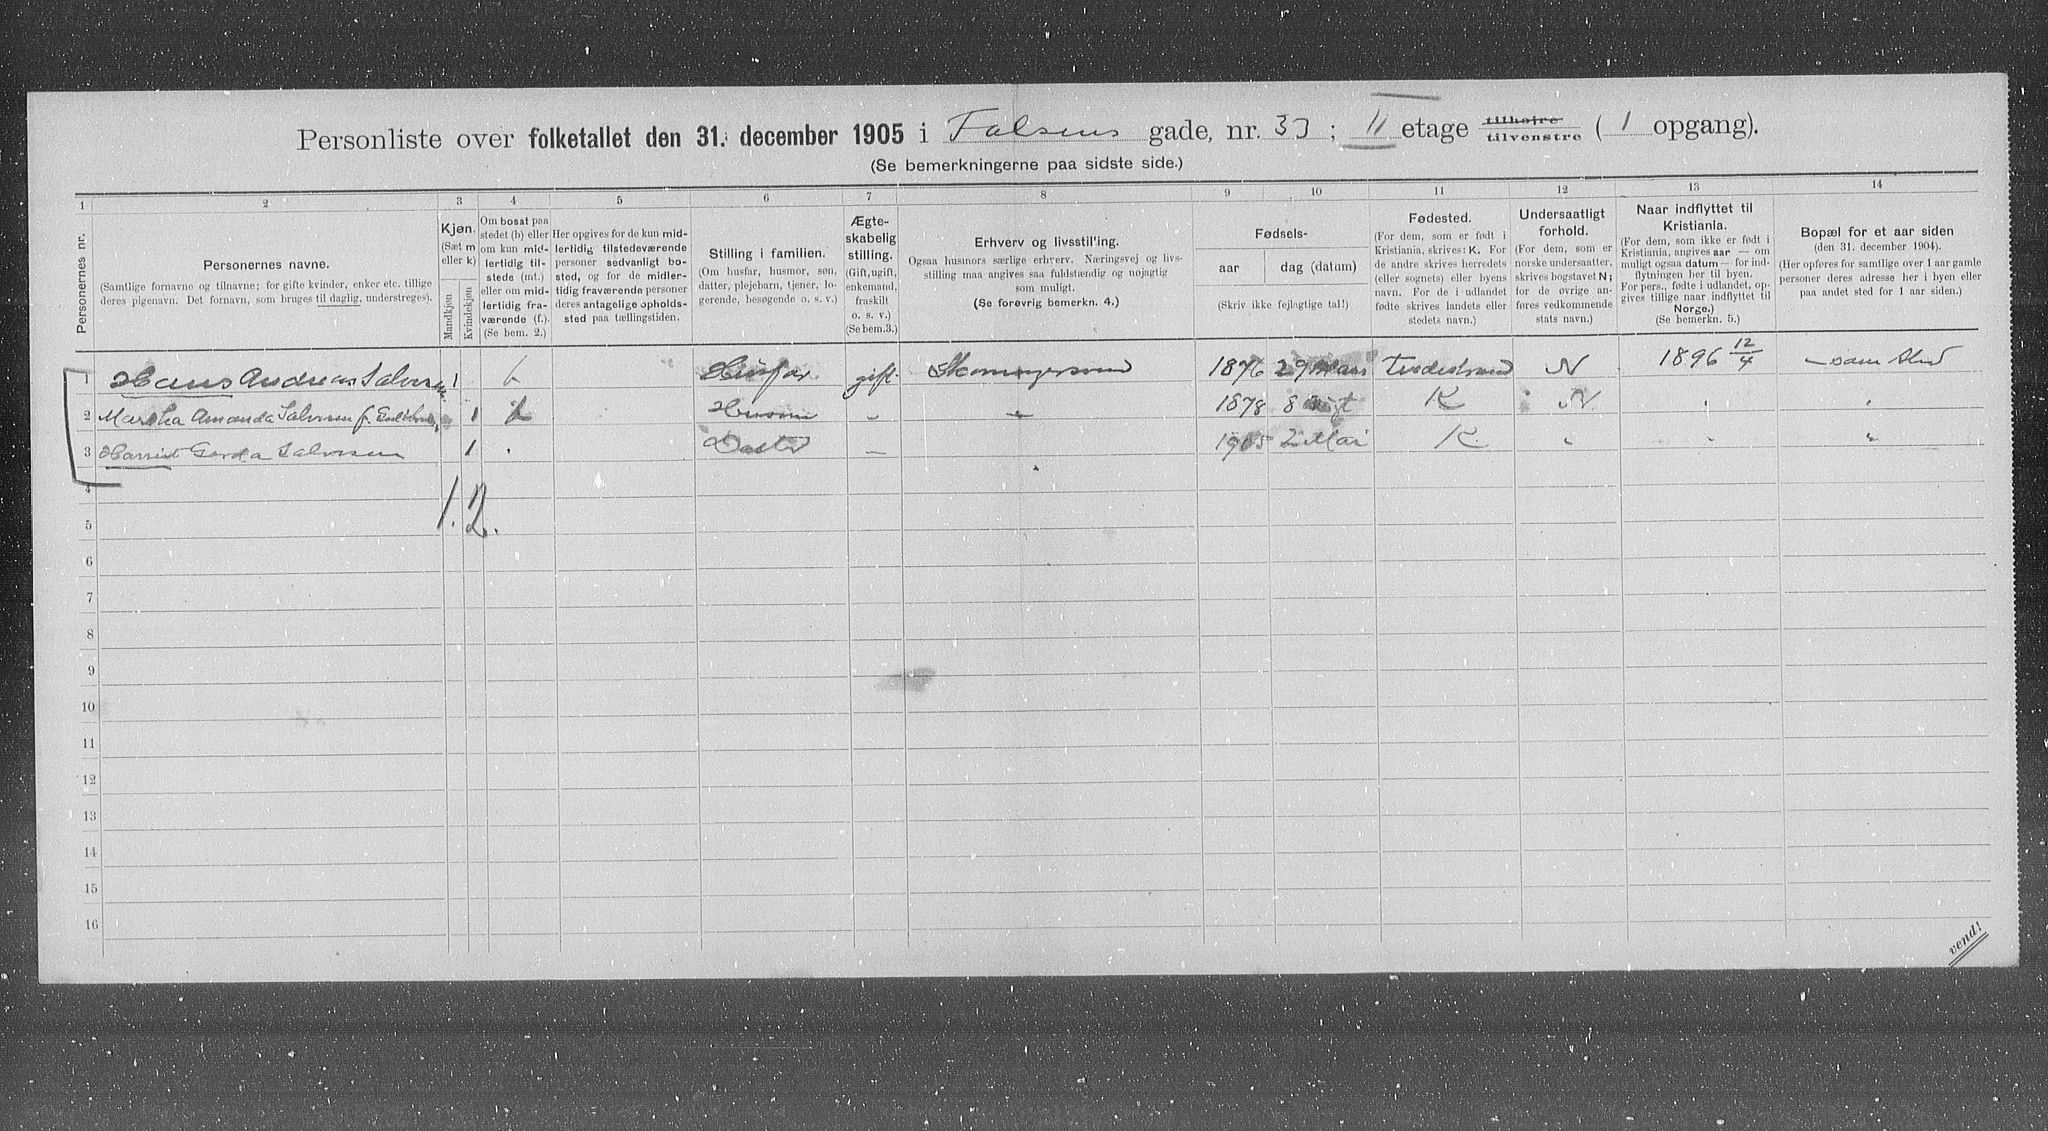 Personliste over folketallet den 31. december 1905 i Falsens gade, nr. 33; II etage tilhøire tilvenstre (1 opgang).
(Se bemerkningerne paa sidste side.)
1 2 3 4 5 6 7 8 9 10 11 12 13 14
Personernes nr.
Personernes navne.
(Samtlige fornavne og tilnavne; for gifte kvinder, enker etc. tillige
deres pigenavn. Det fornavn, som bruges til daglig, understreges).
Kjøn.
(Sæt m
eller k)
Mandkjøn
Kvindekjøn
Om bosat paa
stedet (b) eller
om kun mid-
lertidig til-
stede (mt.)
eller om mid-
lertidig fra-
værende (f.).
(Se bem. 2.)
Her opgives for de kun mid-
lertidig tilstedeværende
personer sedvanligt bo-
sted, og for de midler-
tidig fraværende personer
deres antagelige opholds-
sted paa tællingstiden.
Stilling i familien.
(Om husfar, husmor, søn,
datter, plejebarn, tjener, lo-
gerende, besøgende o. s. v.)
Ægte-
skabelig
stilling.
(Gift, ugift,
enkemand,
fraskilt
o. s. v.)
(Se bem.3.)
Erhverv og livsstilling.
Ogsaa husmors særlige erhverv. Næringsvej og livs-
stilling maa angives saa fuldstændig og nøjagtig
som muligt.
(Se forøvrig bemerkn. 4.)
Fødsels-
aar
dag (datum)
(Skriv ikke fejlogtige tal!)
Fødested.
(For dem, som er født i
Kristiania, skrives: K. For
de andre skrives herredets
(eller sognets) eller byens
navn. For de i udlandet
fødte skrives landets eller
stedets navn.)
Undersaatligt
forhold.
(For dem, som er
norske undersaatter,
skrives bogstavet N;
for de øvrige an-
føres vedkommende
stats navn.)
Naar indflyttet til
Kristiania.
(For dem, som ikke er født i
Kristiania, angives aar — om
muligt ogsaa datum — for ind-
flytningen her til byen.
For pers., fødte i udlandet, op-
gives tillige naar indflyttet til
Norge.)
(Se bemerkn. 5.)
Bopæl for et aar siden
(den 31. december 1904).
(Her opføres for samtlige over 1 aar gamle
personer deres adresse her i byen eller
paa andet sted for 1 aar siden.)
1 Hans Andreas Salvesen 1 b Husfar gift. 1876 29 Mars N 1896 12/4 samested
2 Martha Amanda Salvesen f. 1 b Husmor " " 1878 8 K N. " "
3 Harriet Gerda Salvesen 1 " Datter — 1905 2 Mai K. " " "
4
1. 2.
5
6
7
8
9
10
11
12
13
14
15
16
vend!